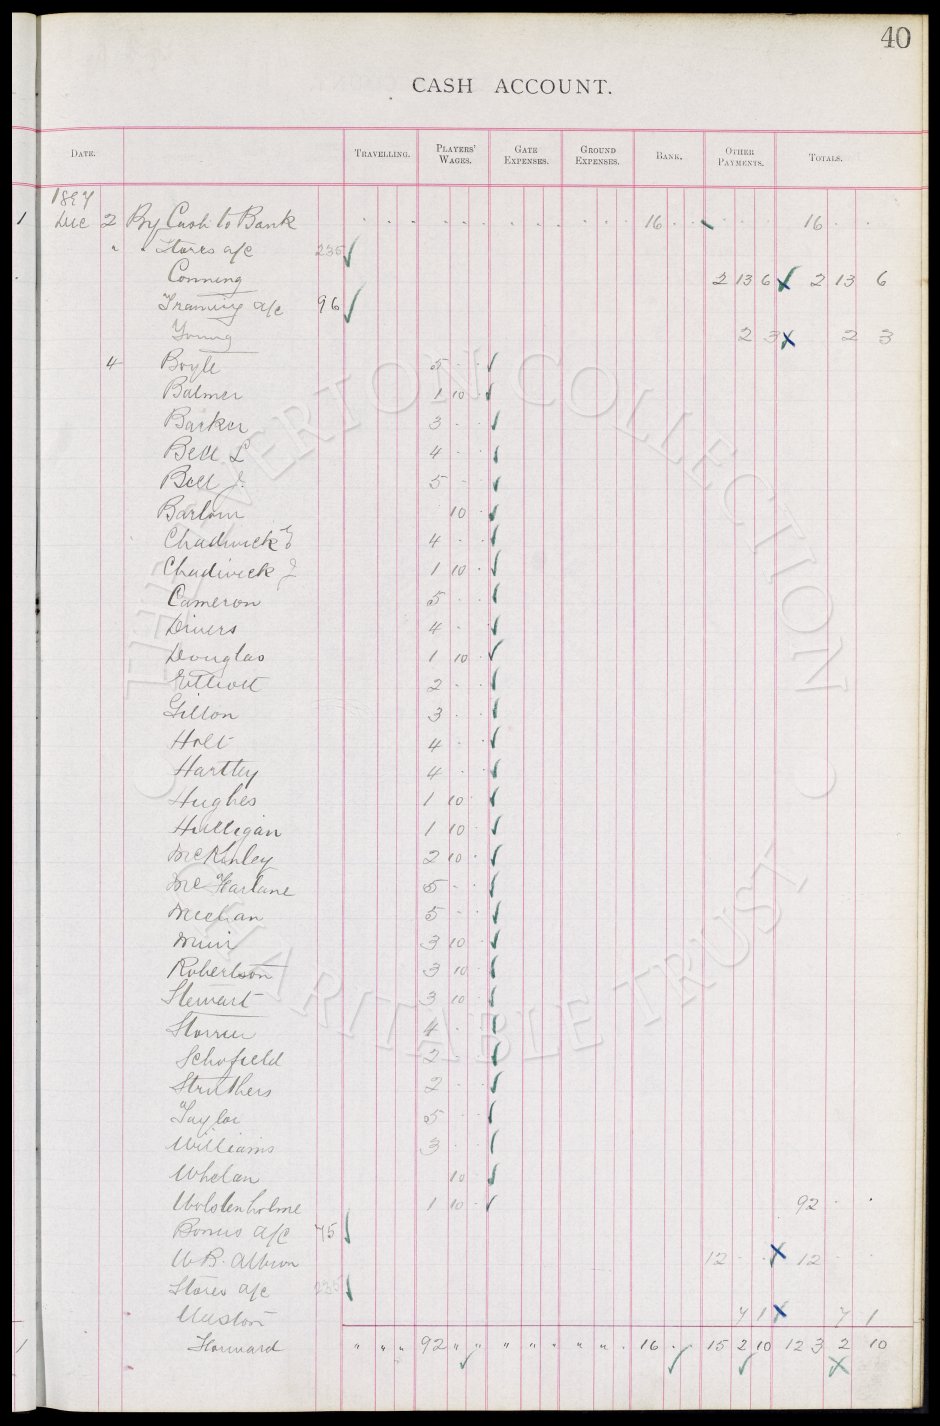 40
CASH ACCOUNT.
DATE. TRAVELLING. PLAYERS' WAGES. GATE EXPENSES. GROUND EXPENSES. BANK. OTHER PAYMENTS. TOTALS.
1897
1 Dec 2 By Cash to Bank 16 . . 16 . .
" " Stores a/c 235
Conning 2 13 6 2 13 6
Training a/c 96
Young 2 3 2 3
4 Boyle 5 . .
Balmer 1 10 .
Barker 3 . .
Bell L 4 . .
Bell J. 5 . .
Barlow 10 .
Chadwick E 4 . .
Chadwick J 1 10 .
Cameron 5 . .
Divers 4 . .
Douglas 1 10 .
Elliott 2 . .
Gillon 3 . .
Holt 4 . .
Hartley 4 . .
Hughes 1 10 .
Hulligan 1 10 .
McKinley 2 10 .
McFarlane 5 . .
Meehan 5 . .
Muir 3 10 .
Robertson 3 10 .
Stewart 3 10 .
Storrier 4 . .
Schofield 2 . .
Struthers 2 . .
Taylor 5 . .
Williams 3 . .
Whelan 10 .
Wolstenholme 1 10 . 92 . .
Bonus a/c 75
W.B. Albion 12 . . 12 . .
Stores a/c 235
7 1 7 1
1 Forward " " " 92 " " " " " " " . 16 . . 15 2 10 123 2 10
THE EVERTON COLLECTION
CHARITABLE TRUST